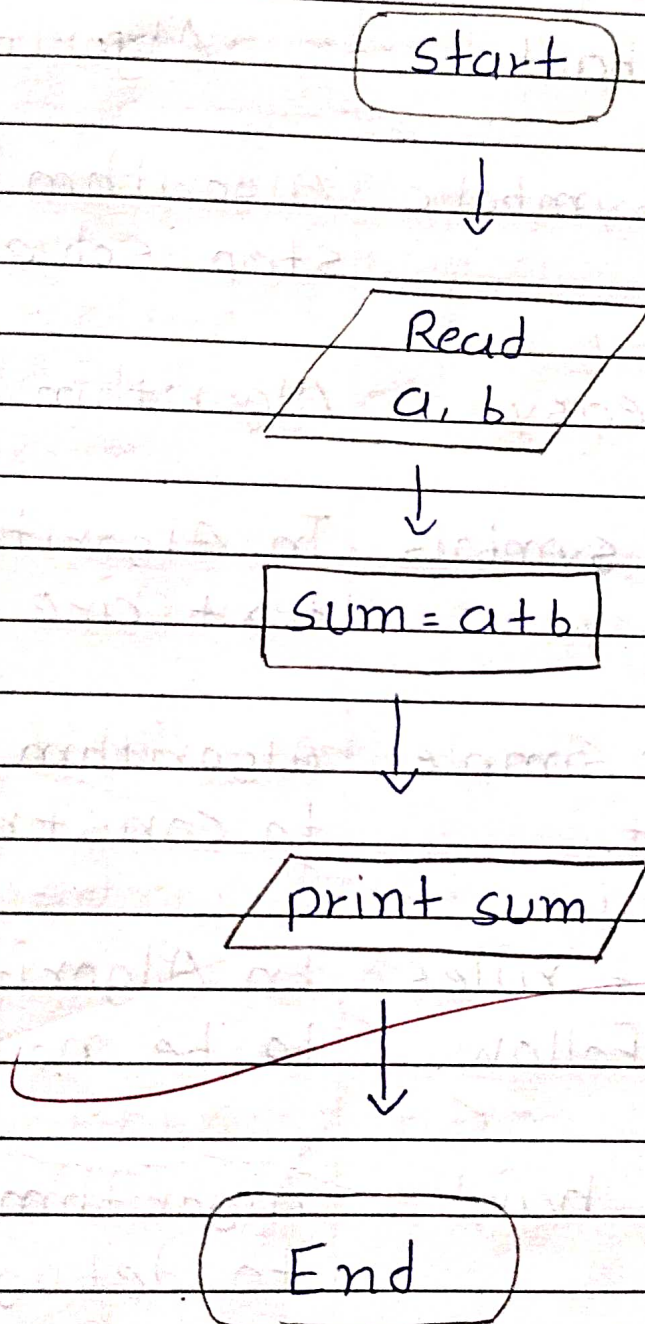 Start
Read
a, b
Sum = a+b
print sum
End